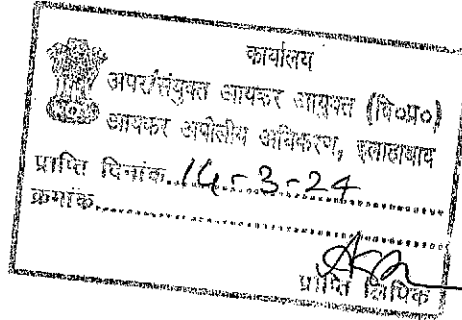 कार्यालय
अपर/संयुक्त आयकर आयुक्त (वि०प्र०)
आयकर अपीलीय अधिकरण, इलाहाबाद
प्राप्ति दिनांक 14-3-24
क्रमांक
प्राप्ति लिपिक